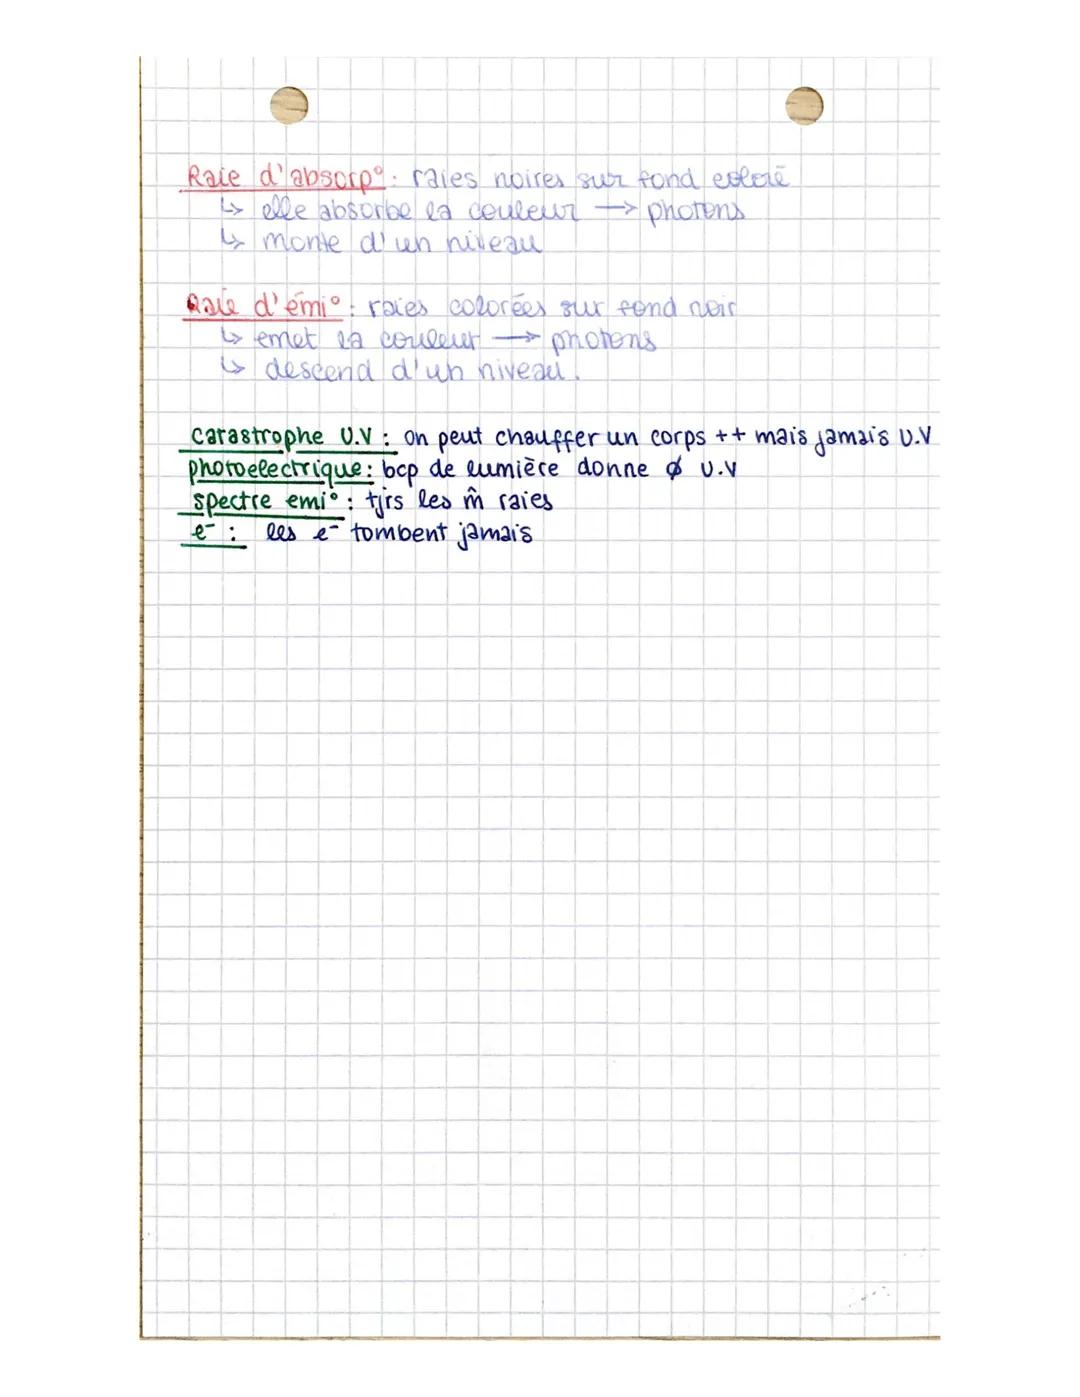 Raie d'absorp°: raies noires sur fond coloré
↳ elle absorbe la couleur → photons
↳ monte d'un niveau
Raie d'émi°: raies colorées sur fond noir
↳ emet la couleur → photons
↳ descend d'un niveau.
catastrophe U.V : on peut chauffer un corps ++ mais jamais U.V
photoelectrique: bcp de lumière donne ø U.V
spectre emi°: tjrs les m̂ raies
e⁻ : les e⁻ tombent jamais